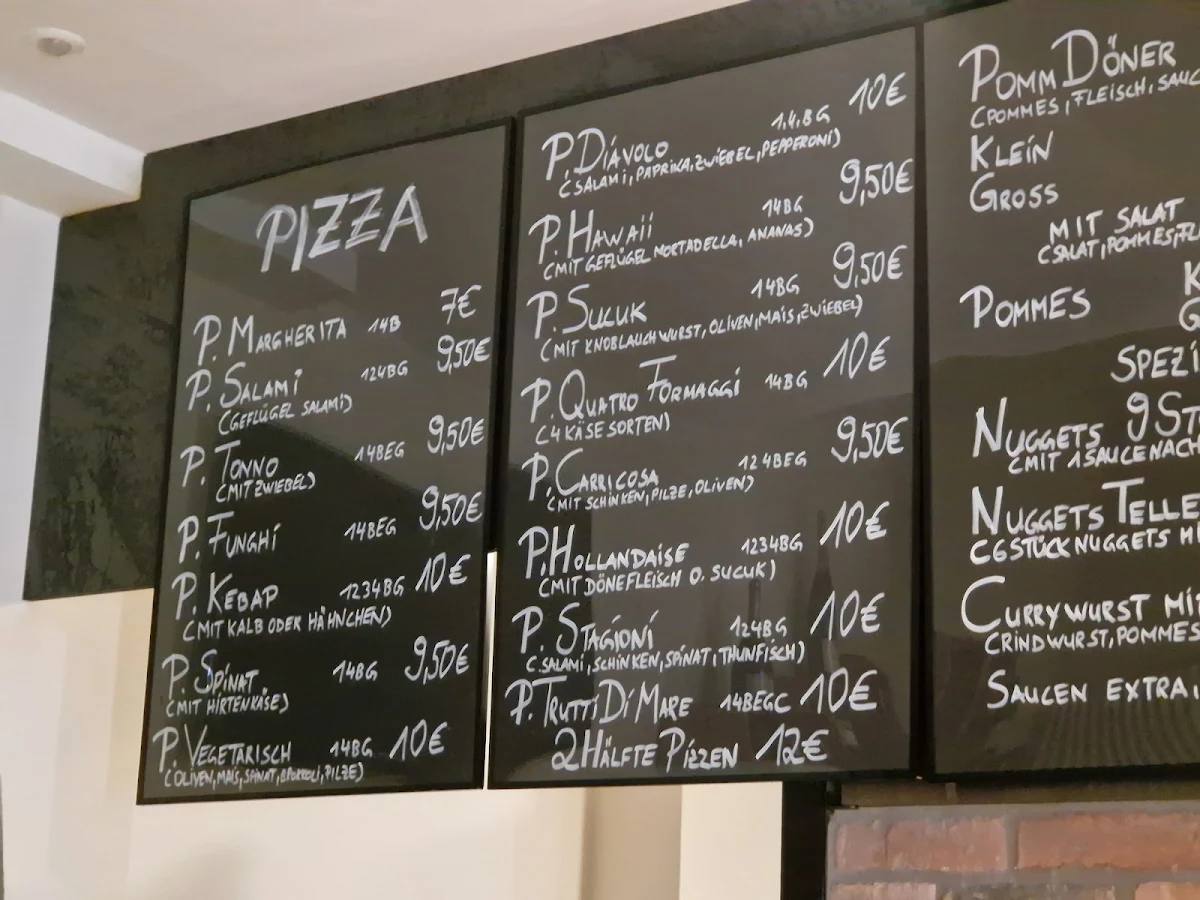 PIZZA
P. MARGHERITA 14B 7€
P. SALAMI 124BG 9,50€
(GEFLÜGEL SALAMI)
P. TONNO 14BEG 9,50€
(MIT ZWIEBEL)
P. FUNGHI 14BEG 9,50€
P. KEBAP 1234BG 10€
(MIT KALB ODER HÄHNCHEN)
P. SPINAT 14BG 9,50€
(MIT HIRTENKÄSE)
P. VEGETARISCH 14BG 10€
(OLIVEN, MAIS, SPINAT, BROKKOLI, PILZE)
P. DIÁVOLO 1,4,BG 10€
(SALAMI, PAPRIKA, ZWIEBEL, PEPPERONI)
P. HAWAII 14BG 9,50€
(MIT GEFLÜGEL MORTADELLA, ANANAS)
P. SUCUK 14BG 9,50€
(MIT KNOBLAUCHWURST, OLIVEN, MAIS, ZWIEBEL)
P. QUATRO FORMAGGI 14BG 10€
(4 KÄSE SORTEN)
P. CARRICOSA 124BEG 9,50€
(MIT SCHINKEN, PILZE, OLIVEN)
P. HOLLANDAISE 1234BG 10€
(MIT DÖNEFLEISCH O. SUCUK)
P. STAGIONI 124BG 10€
(SALAMI, SCHINKEN, SPINAT, THUNFISCH)
P. TRUTTI DI MARE 14BEGC 10€
2 HÄLFTE PIZZEN 12€
POMM DÖNER
(POMMES, FLEISCH, SAUC
KLEIN
GROSS
MIT SALAT
(SALAT, POMMES, FL
POMMES K
G
SPEZI
NUGGETS 9 ST
(MIT 1 SAUCE NACH
NUGGETS TELLE
(6 STÜCK NUGGETS MI
CURRYWURST MIT
(RINDWURST, POMMES
SAUCEN EXTRA